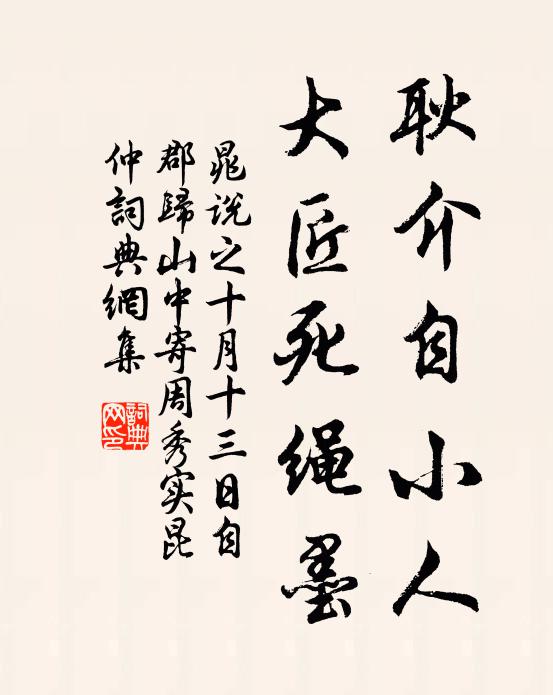 耿介自小人
大匠死绳墨
晁说之十月十三日自
郡歸山中寄周秀实昆
仲詞典網集
詞典
网印